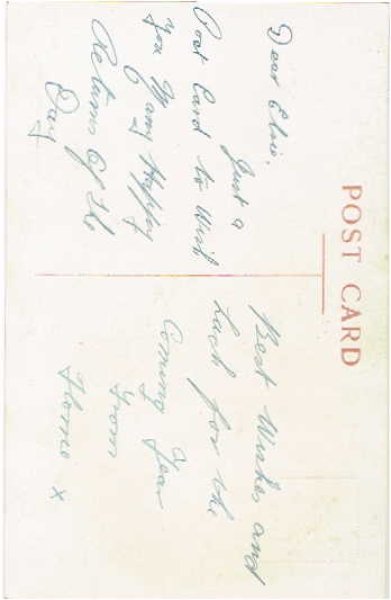 POST CARD
Dear Elsie.
Just a
Post Card to Wish
You Many Happy
Returns Of The
Day
Best Wishes and
Luck for the
Coming Year
From
Home x